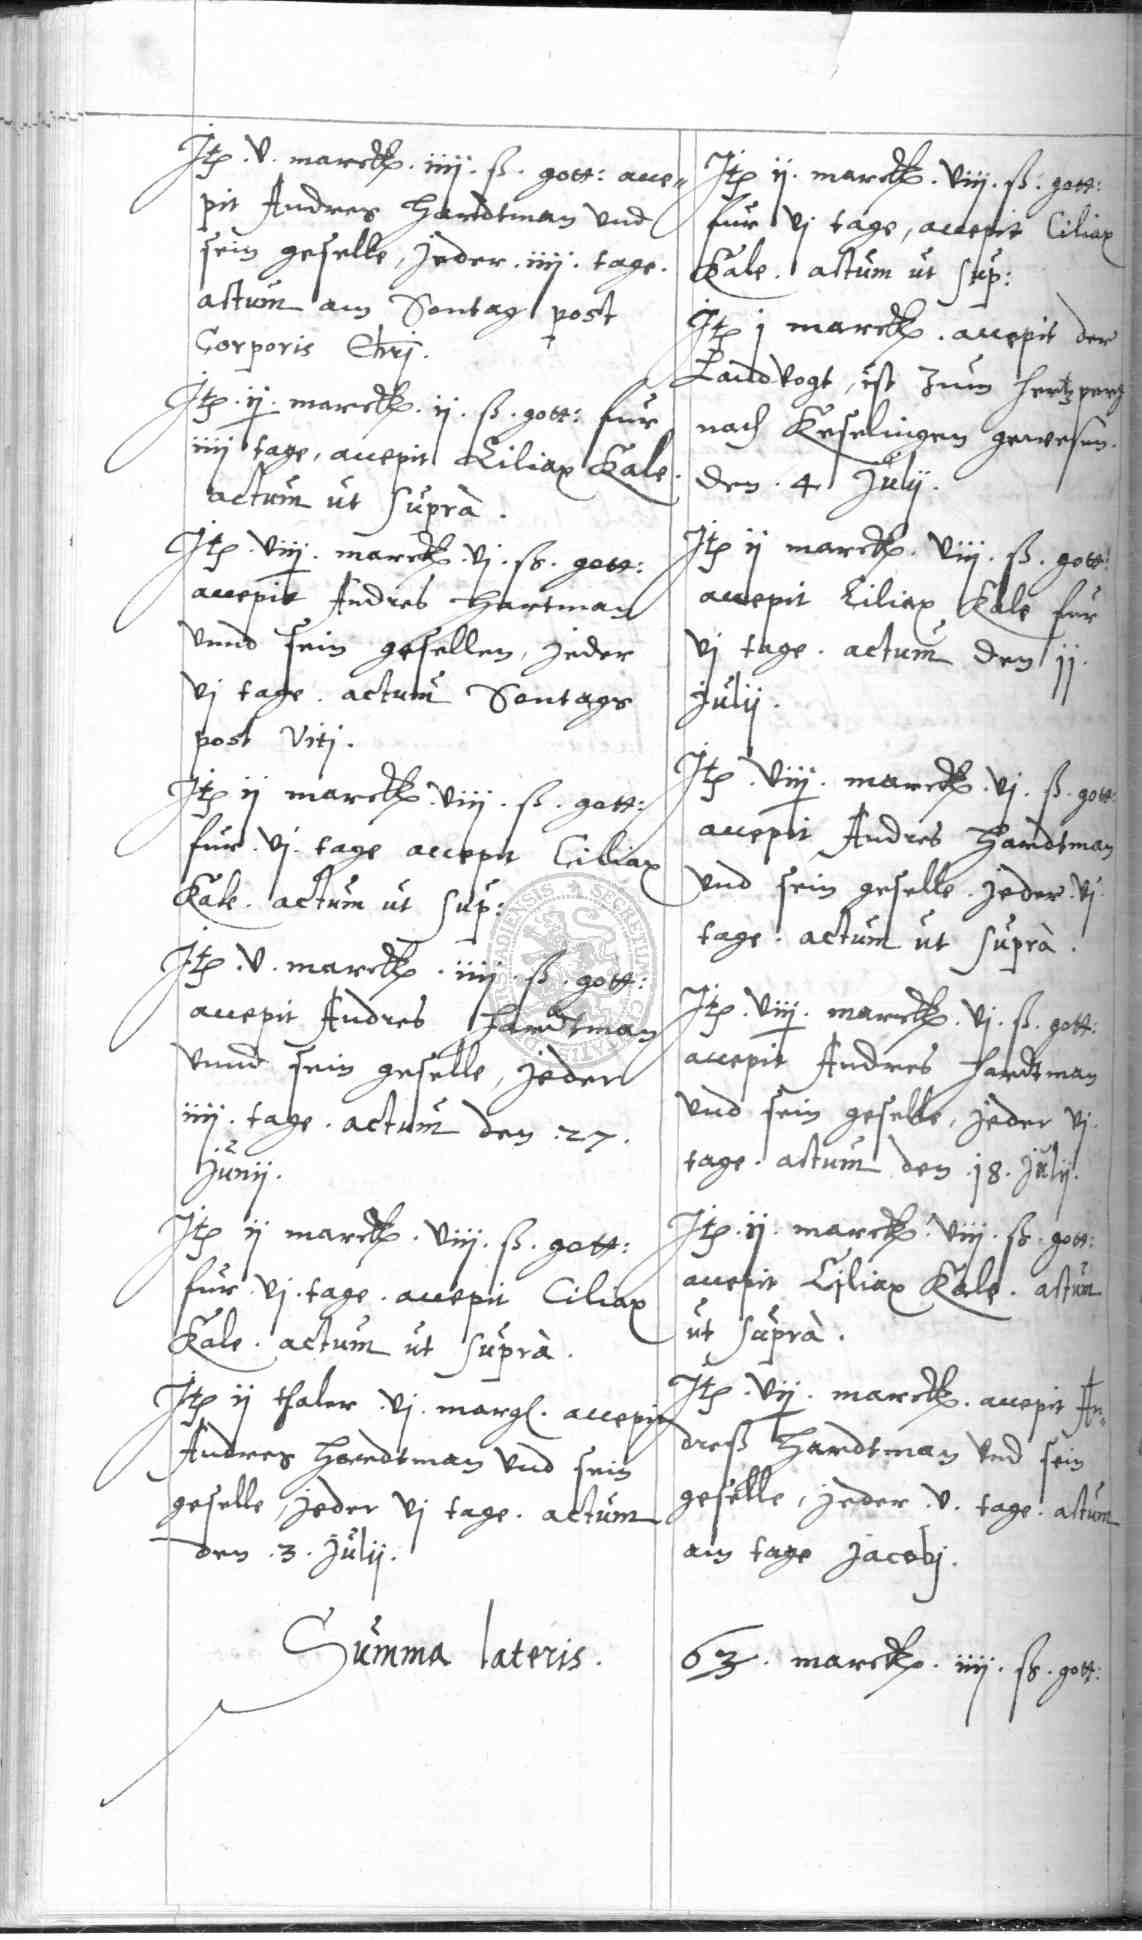 Itē .v. marckē. iiij. ß. gott: acce„
pit Andres Hardtman vnd
sein geselle, jeder .iiij. tage.
actum am Sontag post
Corporis Chrj.
Itē .ij. marckē. ij. ß. gott: fur
iiij tage, accepit Ciliax Kale.
actum ut suprà.
Itē .viij. marckē .vj. ß. gott:
accepit Andres Hartman
vnnd sein gesellen, jeder
vj tage. actum Sontags
post Vitj.
Itē ij marckē .viij. ß. gott:
fur .vj. tage accepit Ciliax
Kale. actum ut sup:
Itē .v. marckē .iiij. ß. gott:
accepit Andres Hardtman
vnnd sein geselle, jeder
iiij. tage. actum den .27.
Junij.
Itē ij marckē .viij. ß. gott:
fur .vj. tage. accepit Ciliax
Kale. actum ut suprà.
Itē ij thaler .vj. margl. accepit
Andres Hardtman vnd sein
geselle, jeder vj tage. actum
den .3. Julij.
Itē ij. marckē. viij. ß. gott:
fur vj tage, accepit Ciliax
Kale. actum ut sup:
Itē j marckē. accepit der
Landvogt, ist zum Hertzperg
nach Keselingen gewesen.
den .4 Julij.
Itē ij marckē. viij. ß. gott:
accepit Ciliax Kale fur
vj tage. actum den jj.
Julij.
Itē .viij. marckē .vj. ß. gott:
accepit Andres Hardtman
vnd sein geselle. jeder .vj.
tage. actum ut suprà.
Itē .viij. marckē .vj. ß. gott:
accepit Andres Hardtman
vnd sein geselle, jeder vj.
tage. actum den .j8. Julij.
Itē .ij. marckē. viij. ß. gott:
accepit Ciliax Kale. actum
ut suprà.
Itē .vij. marckē. accepit An„
dreß Hardtman vnd sein
geselle, jeder .v. tage. actum
am tage Jacobj.
Summa lateris. 63. marckē. iiij. ß. gott: